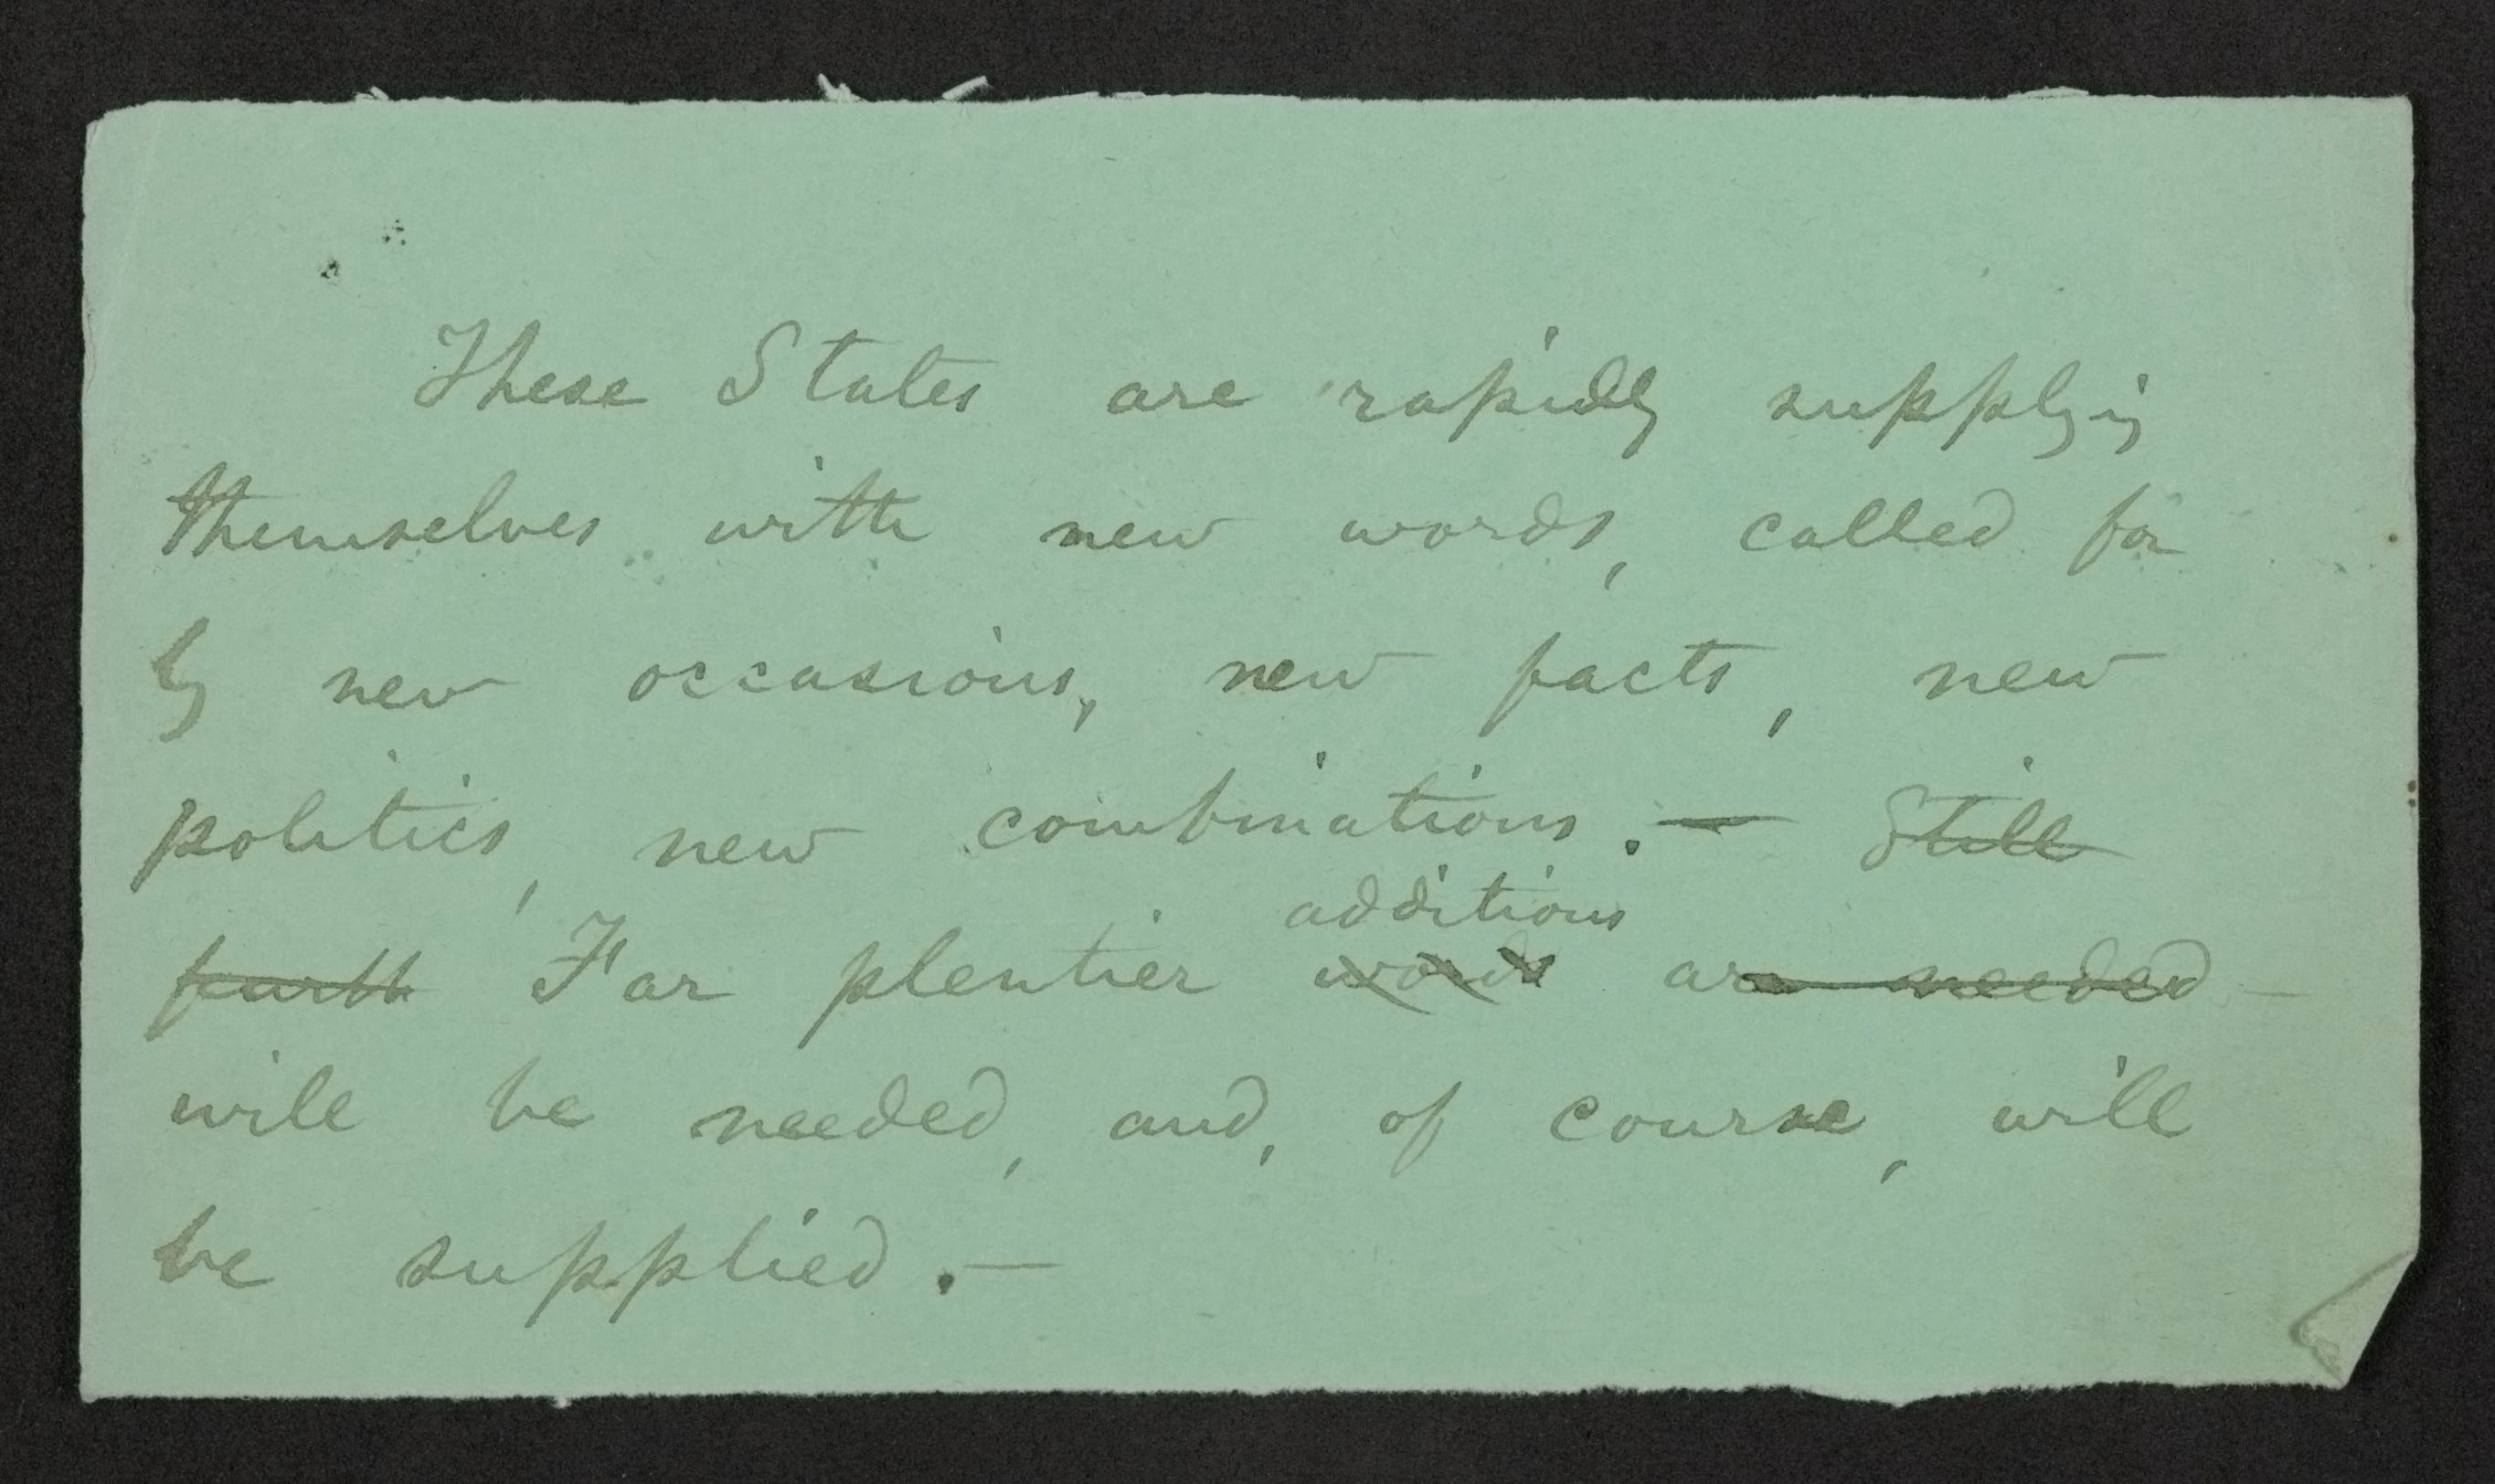 These States are rapidly supplying
themselves with new words, called for
by new occasions, new facts, new
politics, new combinations.— Still
additions
Far plentier words are needed—
will be needed, and, of course, will
be supplied.—